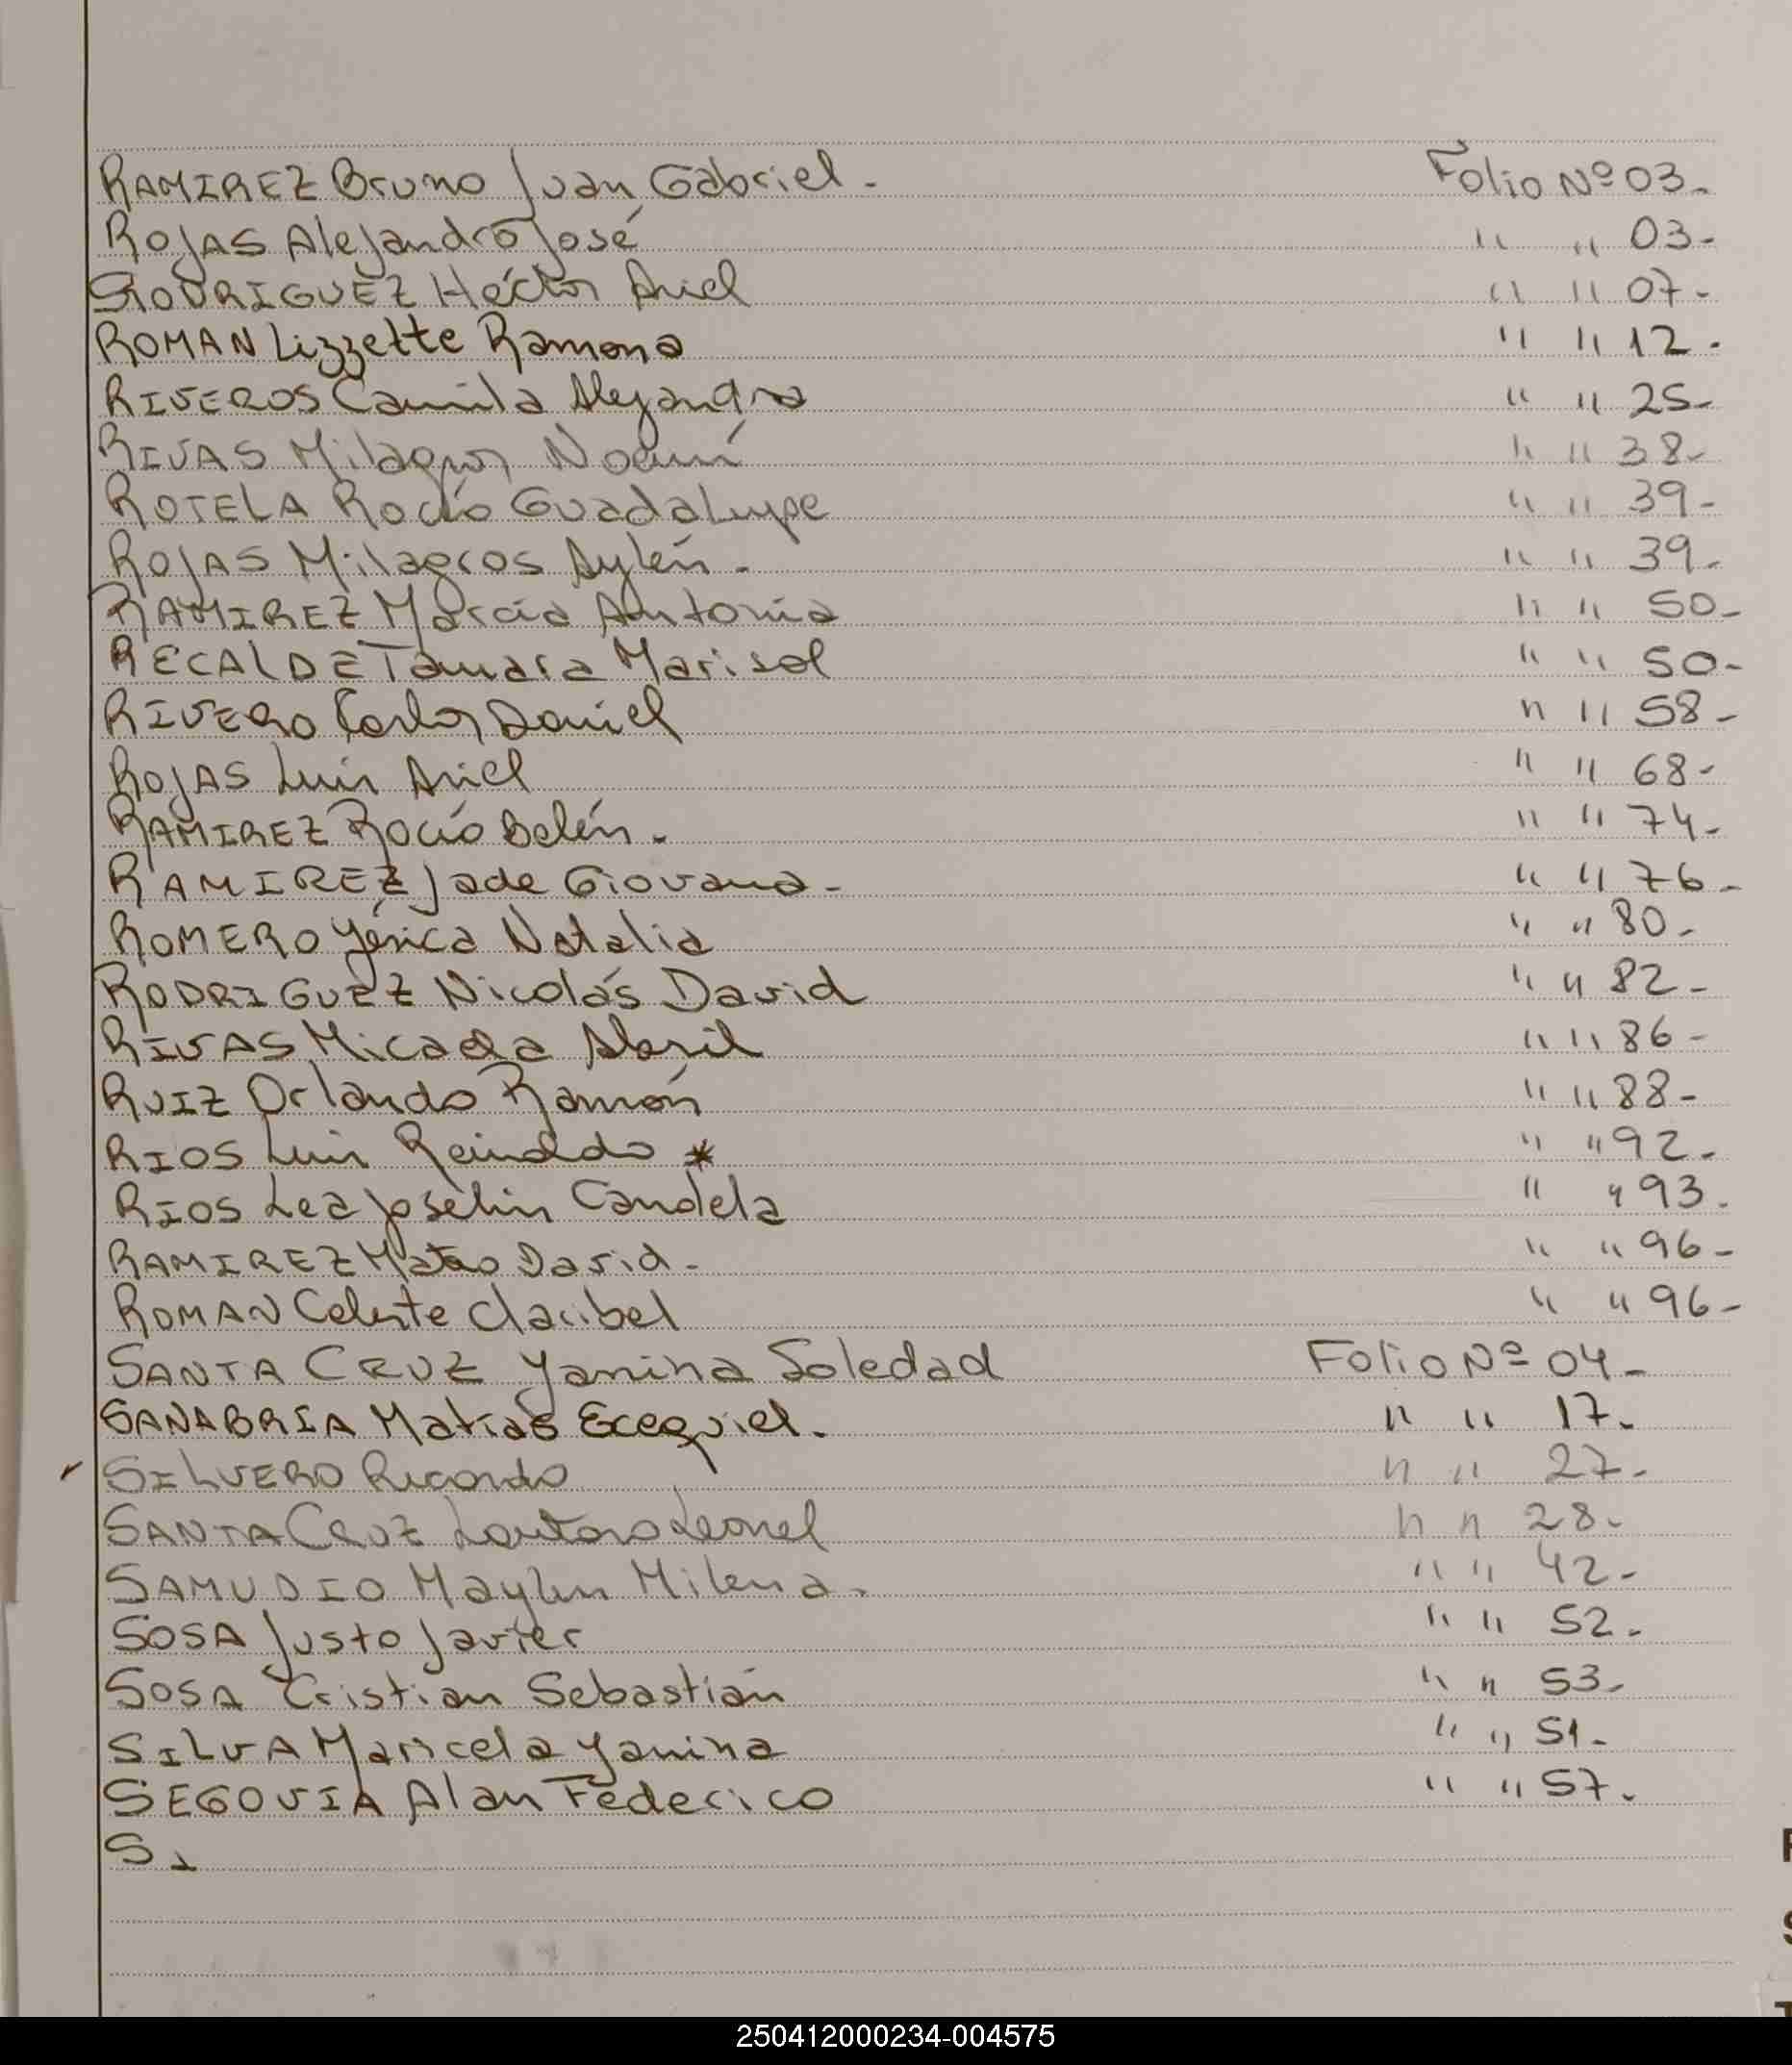 RAMIREZ Bruno Juan Gabriel - Folio Nº 03-
ROJAS Alejandro José " " 03-
RODRIGUEZ Héctor Ariel " " 07-
ROMAN Lizzette Ramona " " 12-
RIVEROS Camila Alejandra " " 25-
RIVAS Milagros Noemí " " 38-
ROTELA Rocío Guadalupe " " 39-
ROJAS Milagros Aylén - " " 39-
RAMIREZ Marcia Antonia " " 50-
RECALDE Tamara Marisol " " 50-
RIVERO Carlos Daniel " " 58-
ROJAS Luis Ariel " " 68-
RAMIREZ Rocío Belén - " " 74-
RAMIREZ Jade Giovana - " " 76-
ROMERO Yésica Natalia " " 80-
RODRIGUEZ Nicolás David " " 82-
RIVAS Micaela Abril " " 86-
RUIZ Orlando Ramón " " 88-
RIOS Luis Reinaldo * " " 92-
RIOS Lea Joselin Candela " " 93-
RAMIREZ Mateo David - " " 96-
ROMAN Celeste Claribel " " 96-
SANTA CRUZ Yanina Soledad Folio Nº 04-
SANABRIA Matias Ecequiel. " " 17-
SILVERO Ricardo " " 27-
SANTA CRUZ Lautaro Leonel " " 28-
SAMUDIO Maylen Milena - " " 42-
SOSA Justo Javier " " 52-
SOSA Cristian Sebastián " " 53-
SILVA Maricela Yanina " " 51-
SEGOVIA Alan Federico " " 57-
S
250412000234-004575